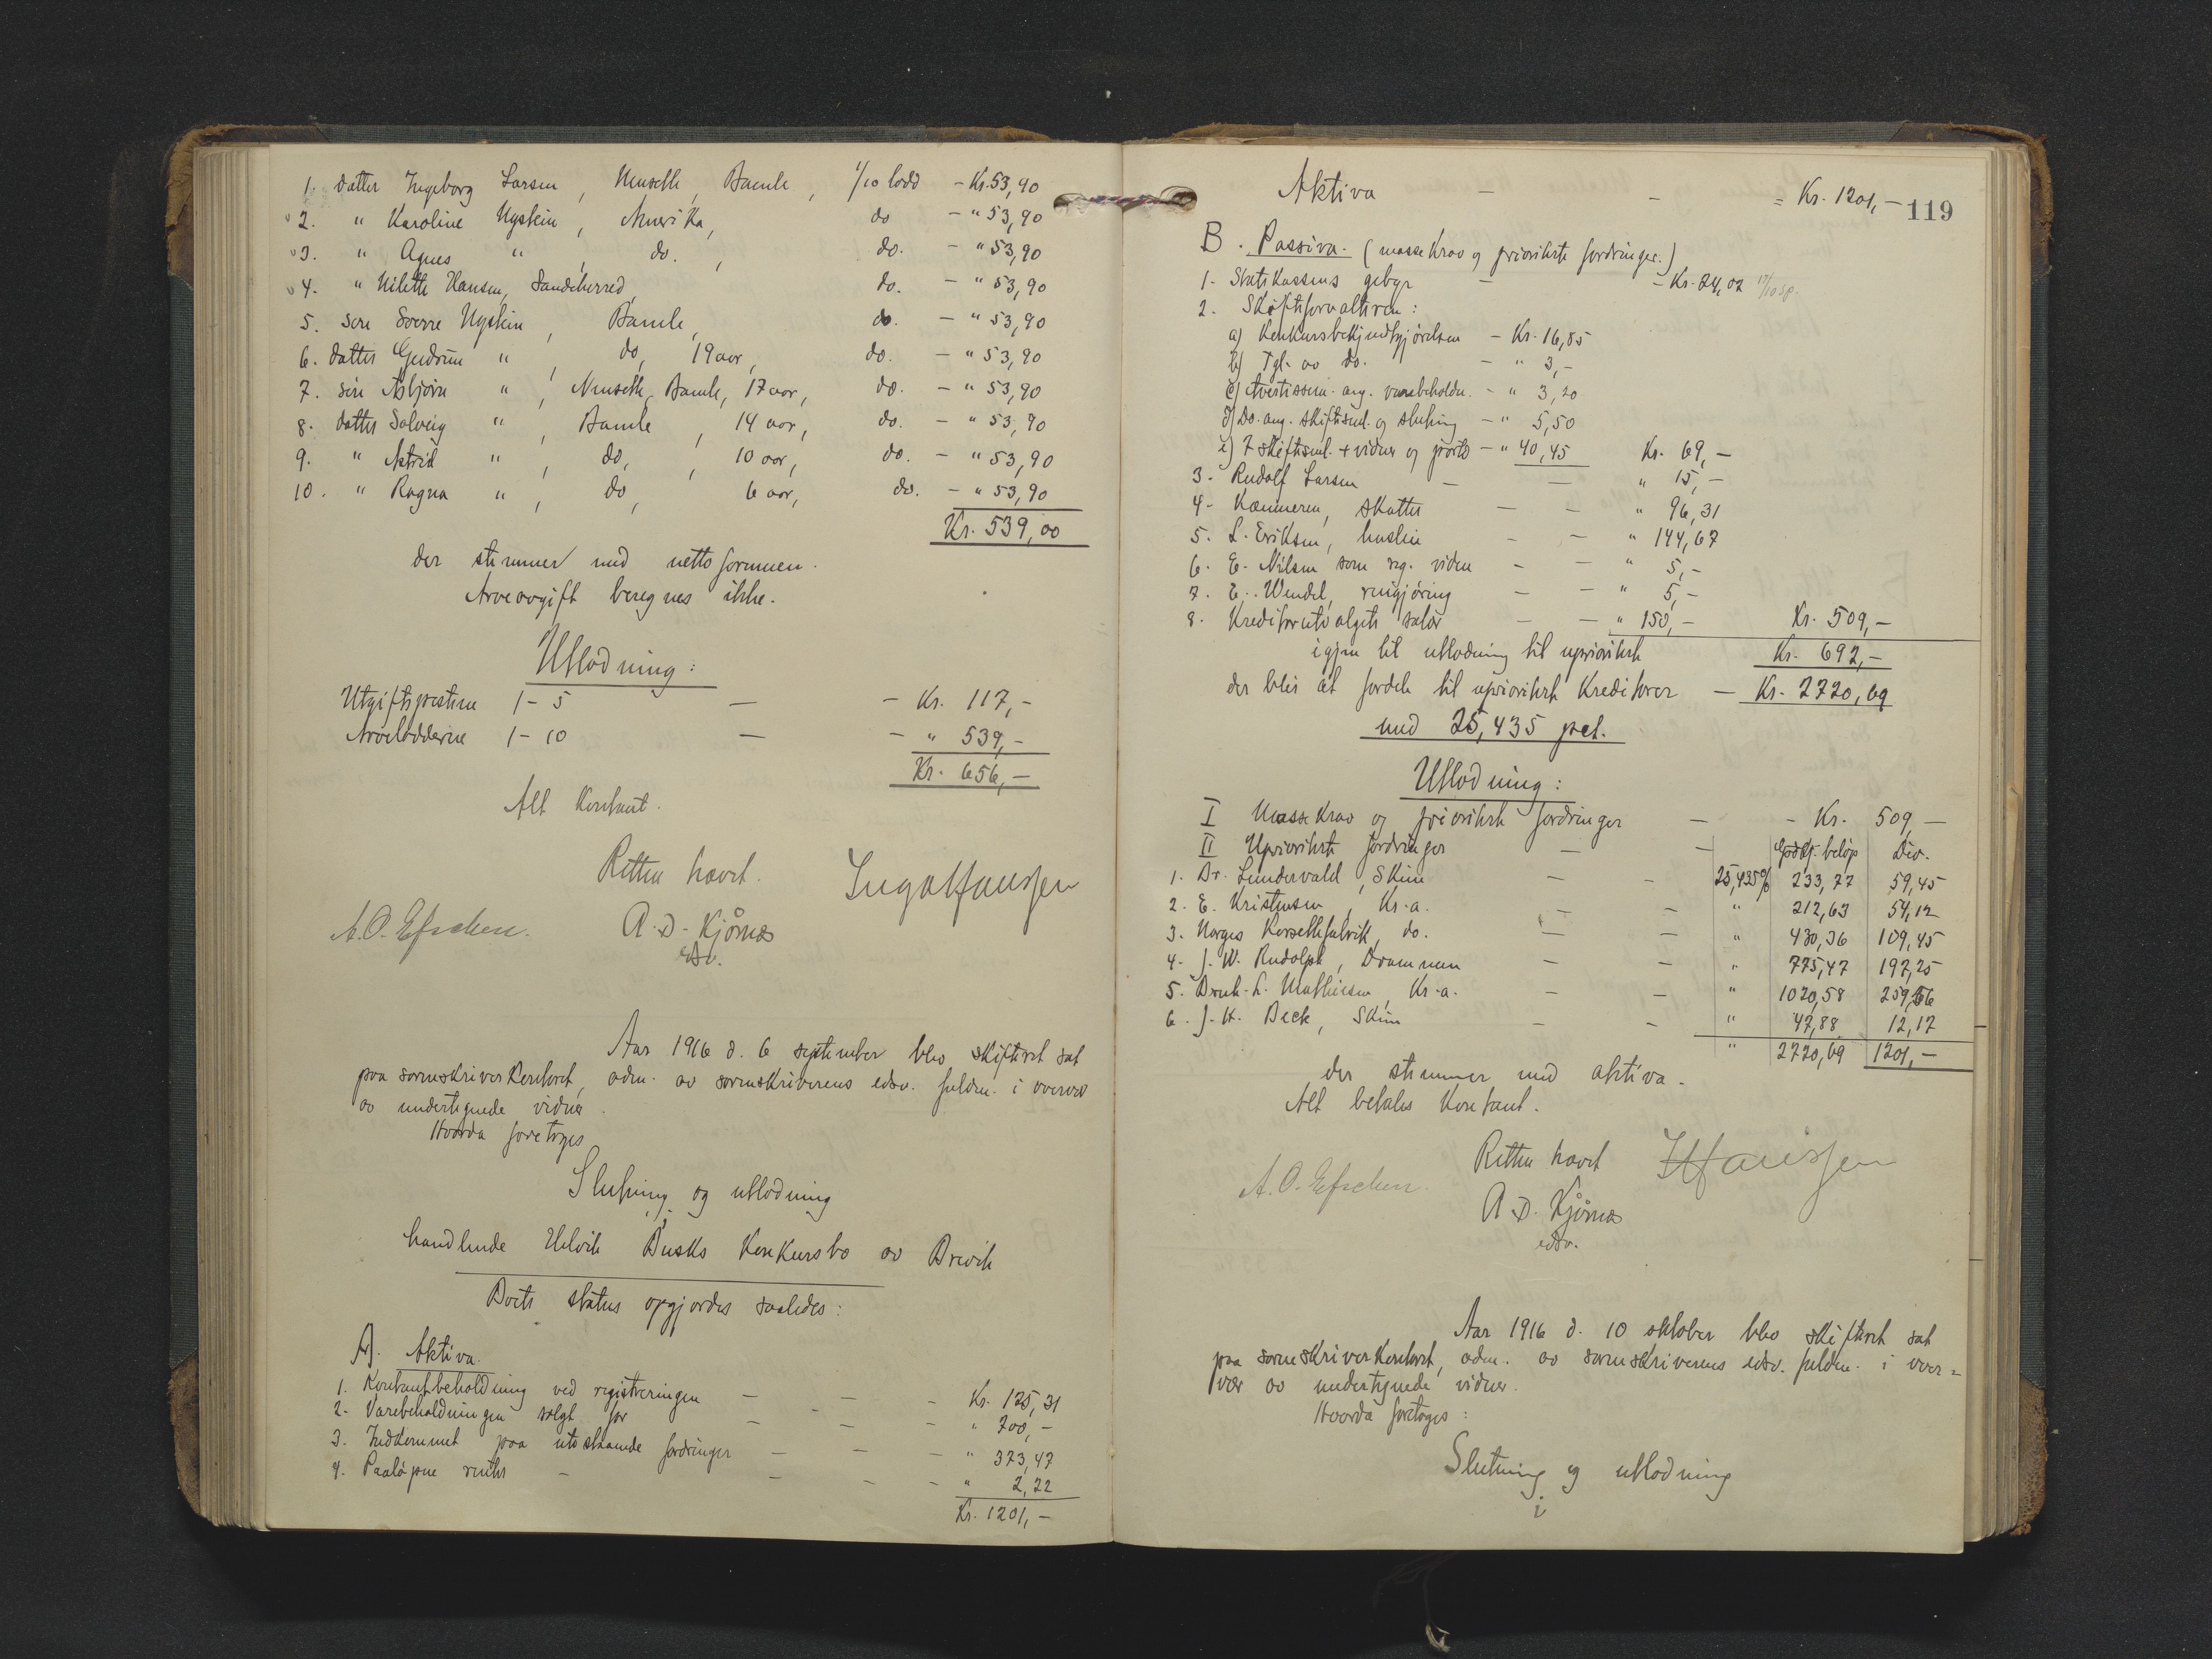 1. datter Ingeborg Larsen, Nenseth, Bamle, 1/10 lodd - Kr. 53,90
2. " Karoline Nystein, Amerika, do - " 53,90
3. " Agnes " , do. , do. - " 53,90
4. " Nilette Hansen, Sandeherred, do. - " 53,90
5. søn Sverre Nystein, Bamle, do. - " 53,90
6. datter Gudrun " , do, 19 aar, do. - " 53,90
7. søn Asbjørn " , Nenseth, Bamle, 17 aar, do. - " 53,90
8. datter Solveig " , Bamle, 14 aar, do. - " 53,90
9. " Astrid " , do, , 10 aar, do. - " 53,90
10. " Ragna " , do, , 6 aar, do. - " 53,90
Kr. 539,00
der stemmer med nettoformuen.
Arveavgift beregnes ikke.
Utlodning:
Utgiftsposterne 1-5 — - Kr. 117,-
Arvelodderne 1-10 — - " 539,-
Kr. 656,-
Alt kontant.
Retten hævet.
A. D. Kjørnæs
edsv.
Aar 1916 d. 6 september blev skifteret sat
paa sorenskriverkontoret, adm. av sorenskriverens edsv. fuldm. i overvær
av undertegnede vidner.
Hvorda foretoges
Slutning og utlodning
i
handlende Helvik Busks konkursbo av Brevik
Boets status opgjordes saaledes:
A. Aktiva.
1. Kontantbeholdning ved registreringen — — - Kr. 125,31
2. Varebeholdningen solgt for — — - " 700,-
3. Indkommet paa utestaaende fordringer — — - " 373,47
4. Paaløpne renter - — — - " 2,22
Kr. 1201,-
119
Aktiva — - = Kr. 1201,-
B. Passiva. (massekrav og prioriterte fordringer.)
1. Statskassens gebyr — - Kr. 24,02
2. Skifteforvalteren:
a) Konkursbekjendtgjørelsen - Kr. 16,85
b) Tgl. av do. - " 3,-
c) Avertissem. ang. varebeholdn. - " 3,20
d) Do. ang. skiftesaml. og slutning - " 5,50
e) 7 skiftesaml. + vidner og porto - " 40,45 Kr. 69,-
3. Rudolf Larsen — — " 15,-
4. Kæmneren, skatter — - " 96,31
5. L. Eriksen, husleie - - " 144,67
6. E. Nilsen som reg. vidne - - " 5,-
7. E. Wendel, rengjøring — - " 5,-
8. Kreditorutvalgets salær - — " 150,- Kr. 509,-
igjen til utlodning til uprioriterte Kr. 692,-
der blir at fordele til uprioriterte kreditorer — Kr. 2720,69
med 25,435 pct.
Utlodning:
I Massekrav og prioriterte fordringer — - Kr. 509,—
II Uprioriterte fordringer — — Godkj. beløp Div.
1. Br. Lundervald, Skien — - 25,435% 233,77 59,45
2. E. Kristensen, Kr.a. — - " 212,63 54,12
3. Norges Korsettfabrik, do. — — " 430,36 109,45
4. J. W. Rudolph, Drammen — - " 775,47 197,25
5. Brnh. L. Mathiesen, Kr.a. - — " 1020,58 259,56
6. J. H. Beck, Skien - - " 47,88 12,17
" 2720,69 1201,-
der stemmer med aktiva.
Alt betales kontant.
Retten hævet
A. D. Kjørnæs
edsv.
Aar 1916 d. 10 oktober blev skifteret sat
paa sorenskriverkontoret, adm. av sorenskriverens edsv. fuldm. i over=
vær av undertegnede vidner.
Hvorda foretoges:
Slutning og utlodning
i